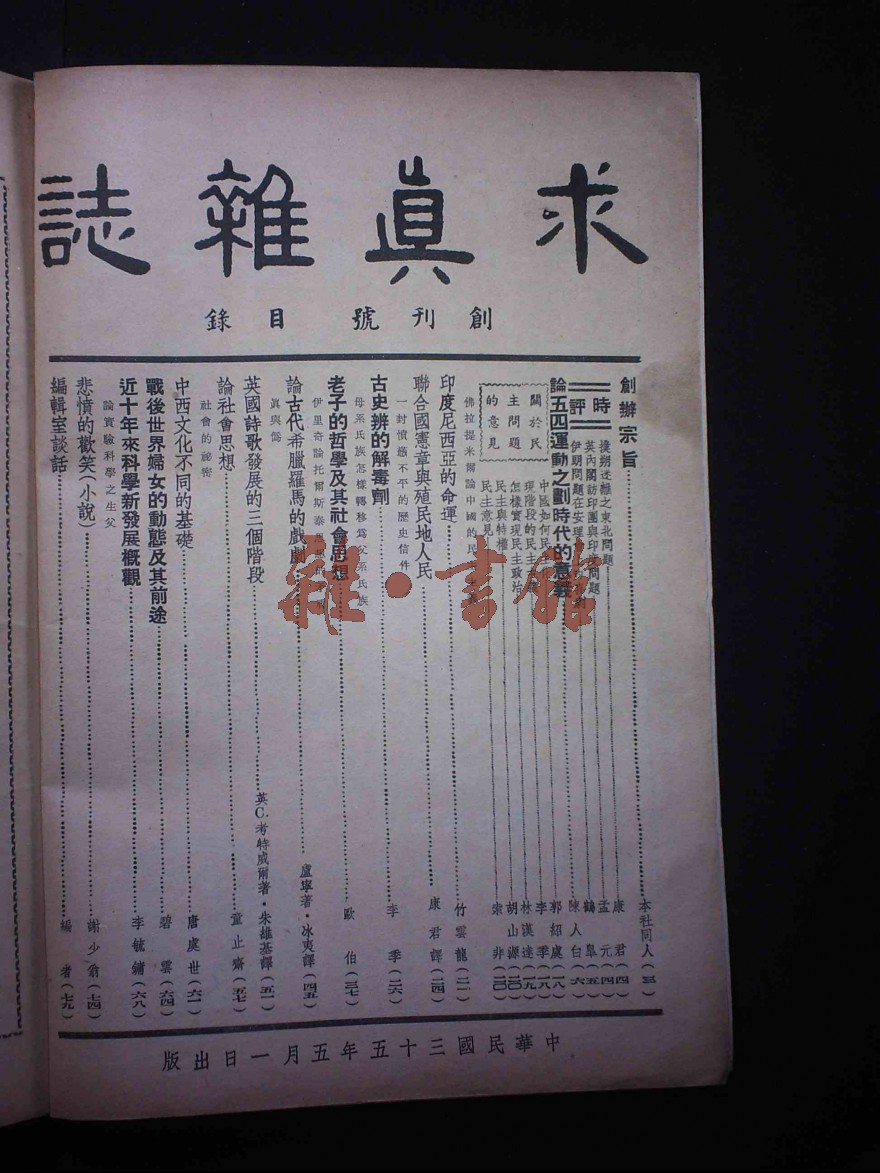 求眞雜誌
創刊號 目錄
創辦宗旨……本社同人(三)
時評
撲朔迷離之東北問題……康君(四)
英內閣訪印團與印度問題……孟元(四)
伊朗問題在安理……鶴皐(五)
論五四運動之劃時代的意義……陳人白(六)
關於民主問題的意見
中國如何民……郭紹虞(一八)
現階段的民主……李季(一八)
怎樣實現民主政治……林漢達(一九)
民主與特權……胡山源(二〇)
民主意見……宗非(二〇)
佛拉提米爾論中國的民
印度尼西亞的命運……竹雲龍(二一)
聯合國憲章與殖民地人民……康君譯(二四)
一封憤懣不平的歷史信件
古史辨的解毒劑……李季(二六)
母系氏族怎樣轉移爲父系氏族
老子的哲學及其社會思想……歐伯(三七)
伊里奇論托爾斯泰
論古代希臘羅馬的戲劇……盧寧著·冰夷譯(四五)
眞與僞
英國詩歌發展的三個階段……英C.考特威爾著·朱雄基譯(五一)
論社會思想……童止齋(五七)
社會的祕密
中西文化不同的基礎……唐處世(六一)
戰後世界婦女的動態及其前途……碧雲(六四)
近十年來科學新發展概觀……李毓鏞(六八)
論實驗科學之生父
悲憤的歡笑(小說)……謝少翁(七四)
編輯室談話……編者(七九)
中華民國三十五年五月一日出版
雜·書館